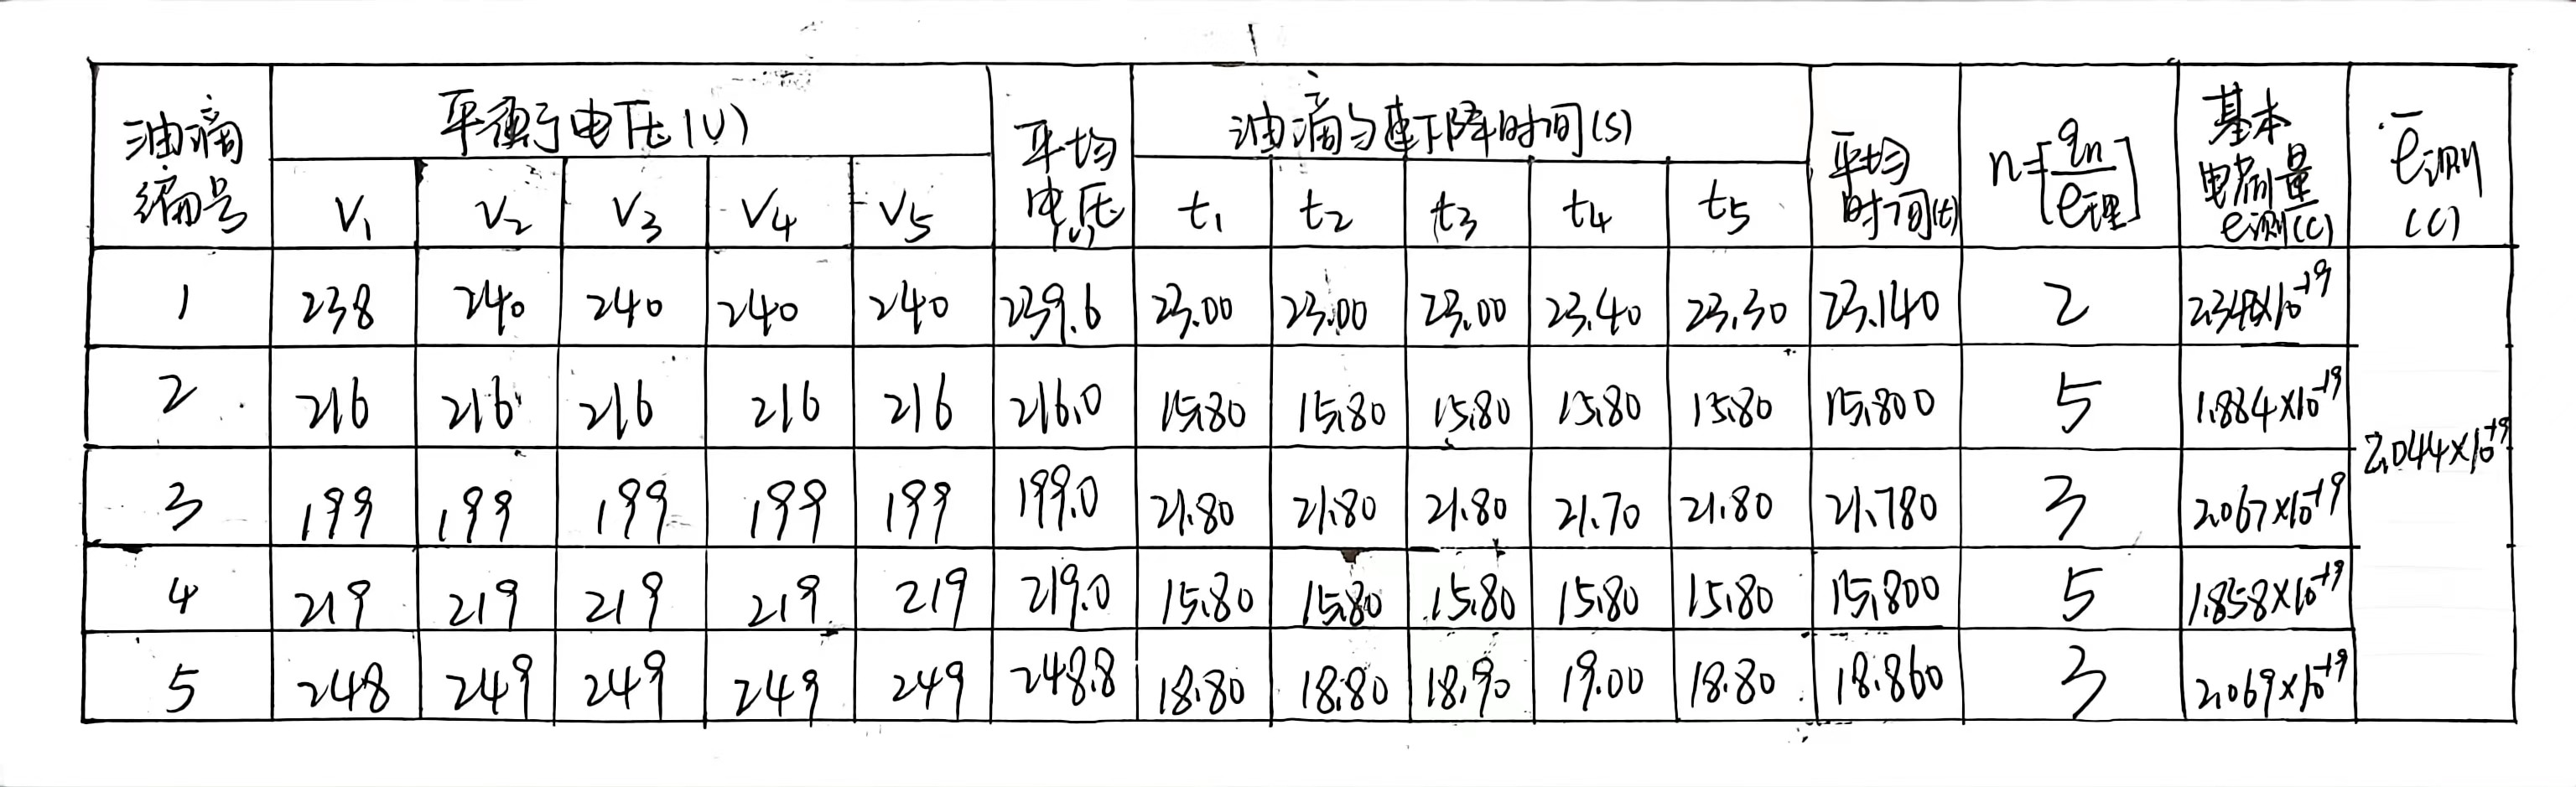 油滴编号 平衡电压(V) 平均电压 油滴匀速下降时间(s) 平均时间(t) n=[qn/e理] 基本电荷量e测(C) ē测(C)
V1 V2 V3 V4 V5 t1 t2 t3 t4 t5
1 238 240 240 240 240 239.6 23.00 23.00 23.00 23.40 23.30 23.140 2 2.342×10⁻¹⁹
2 216 216 216 216 216 216.0 15.80 15.80 15.80 15.80 15.80 15.800 5 1.884×10⁻¹⁹
2.044×10⁻¹⁹
3 199 199 199 199 199 199.0 21.80 21.80 21.80 21.70 21.80 21.780 3 2.067×10⁻¹⁹
4 219 219 219 219 219 219.0 15.80 15.80 15.80 15.80 15.80 15.800 5 1.858×10⁻¹⁹
5 248 249 249 249 249 248.8 18.80 18.80 18.90 19.00 18.80 18.860 3 2.069×10⁻¹⁹